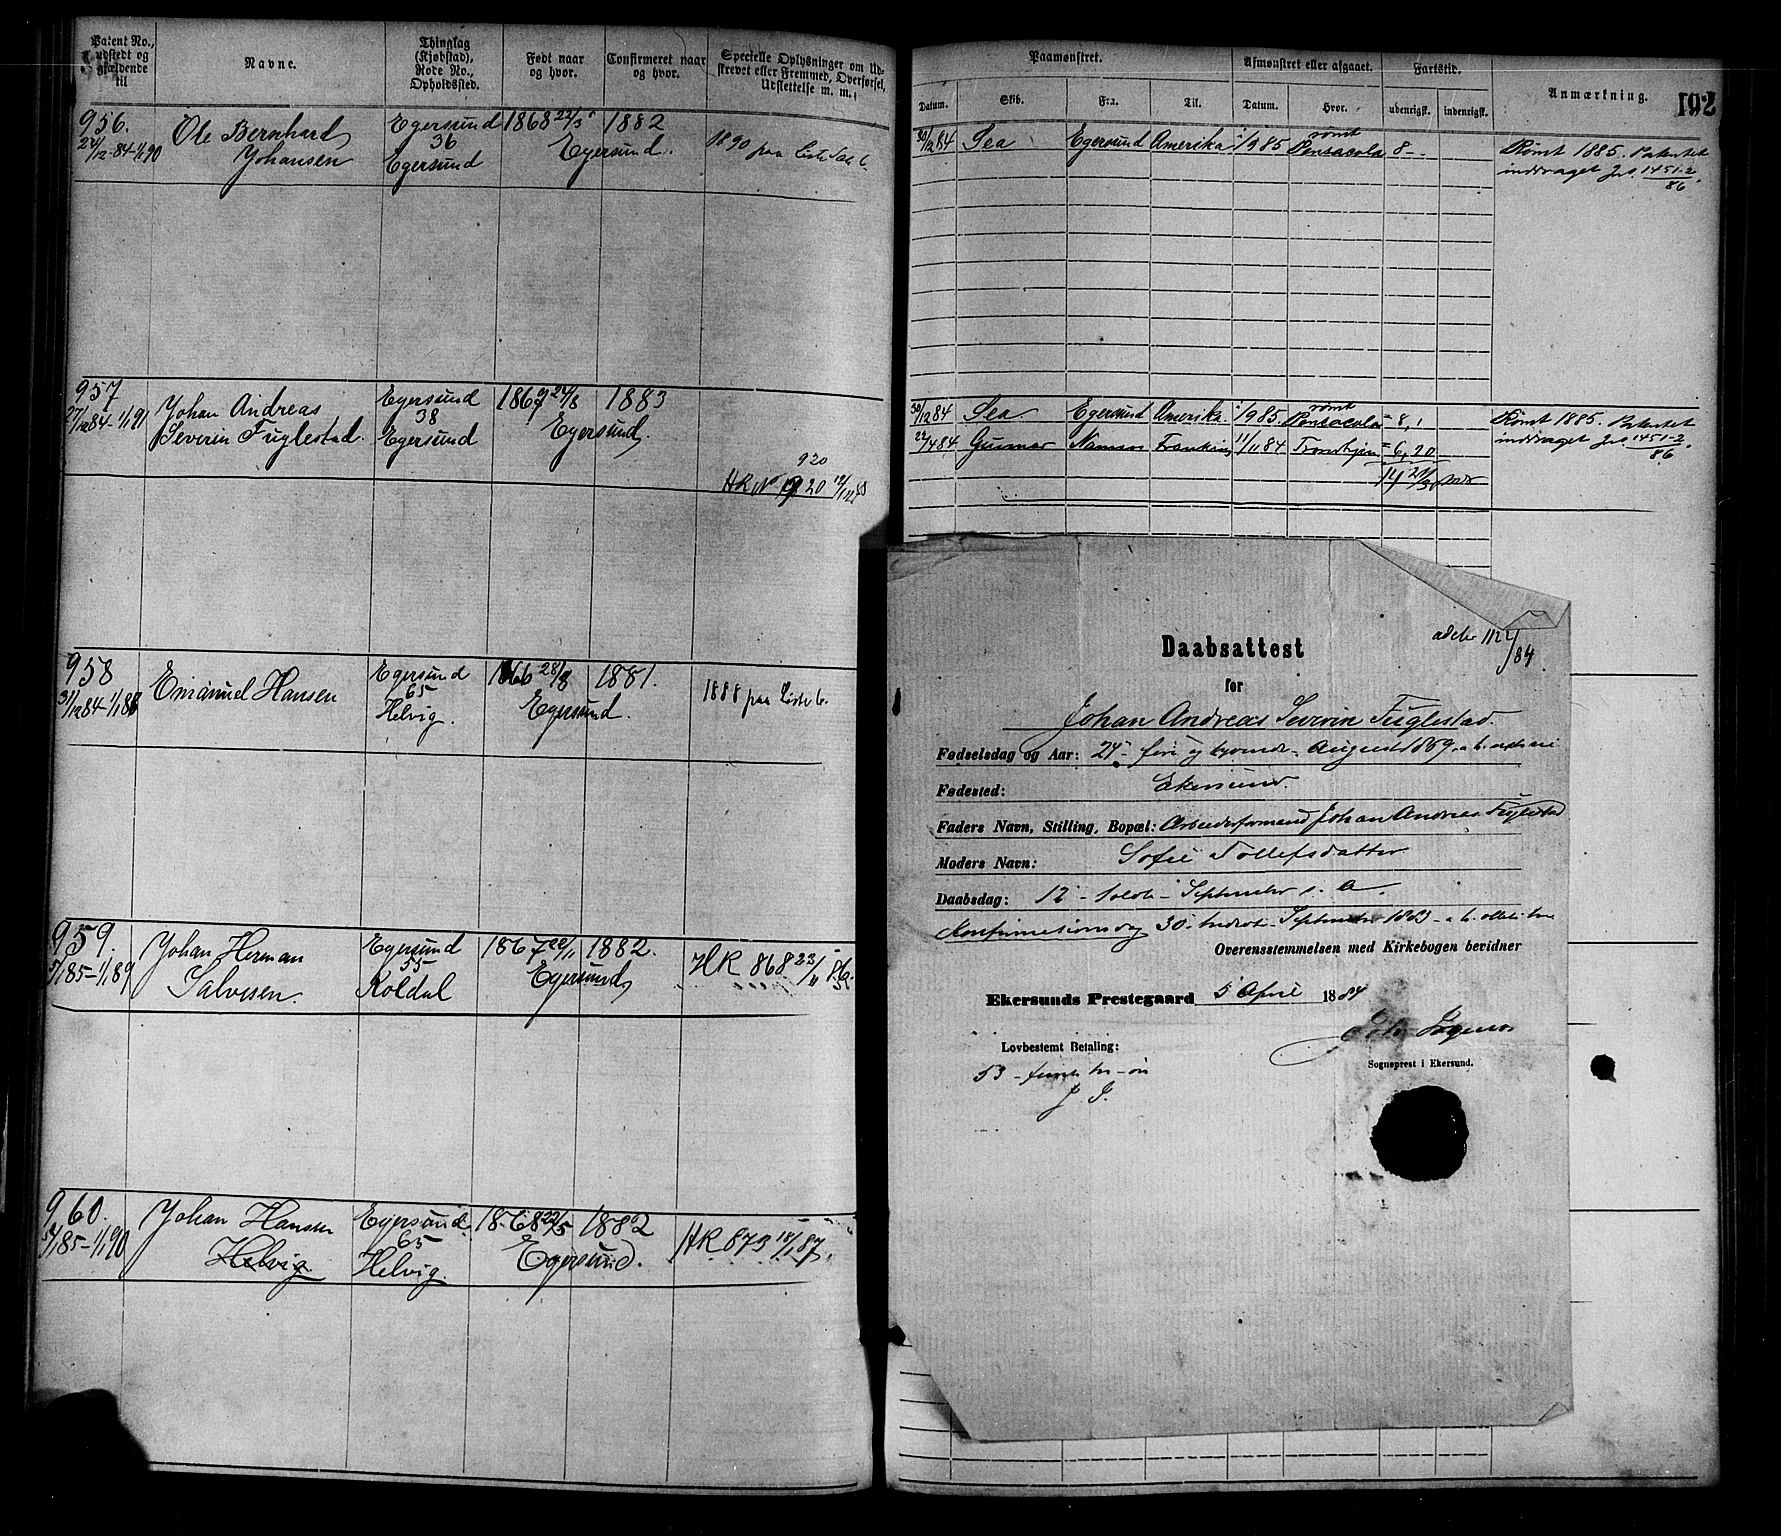 Patent No., udstedt og gjældende til
Navne.
Thinglag (Kjøbstad), Rode No., Opholdssted.
Født naar og hvor.
Confirmeret naar og hvor.
Specielle Oplysninger om Udskrevet eller Fremmed, Overførsel, Udslettelse m. m.
956.
24/12-84-1/1 90
Ole Bernhard
Johansen
Egersund
36
Egersund
1868 22/3
1882
Egersund.
1890 paa
957
27/12 84-1/1 91
Johan Andreas
Severin Fuglestad.
Egersund
38
Egersund
24/8
1883
Egersund.
920
HR No 920
958
31/12 84-1/1 88
Emanuel Hansen
Egersund
65
Helvig.
1866 28/8
1881.
Egersund.
1888 paa
959.
5/1 85-1/1 89
Johan Herman
Salvesen.
Egersund
55
Koldal
1867
1882.
Egersund
HR 868 23/11 86.
960.
5/1 85-1/1 90
Johan Hansen
Helvig
Egersund
65
Helvig.
1868 22/5
1882
Egersund.
HR 873
87.
192
Paamønstret.
Afmønstret eller afgaaet.
Fartstid.
Anmærkning.
Datum.
Skib.
Fra.
Til.
Datum.
Hvor.
udenrigsk.
indenrigsk.
30/12 84
Sea
Egersund
Amerika
1/9 85
rømt
Pensacola
8
Rømt 1885. Patentet
inddraget Jr. 1451-2/86
30/12 84
Sea
Egersund
Amerika
1/9 85
rømt
Pensacola
8
Rømt 1885. Patentet
inddraget Jr. 1451-2/86
22/4 84
Gunnar
Namsos
11/11 84
Trondhjem
6,20
Daabsattest
for
Johan Andreas Severin Fuglestad.
Fødselsdag og Aar: 24- fire og tyvende- August 1869
Fødested: Ekersund.
Faders Navn, Stilling, Bopæl: Arbeidsformand Johan Andreas Fuglestad
Moders Navn: Sofie Tollefsdatter
Daabsdag: 12- tolvte- September s. A.
Konfirmationsdag 30- tredivte September 1883
Overensstemmelsen med Kirkebogen bevidner
Ekersunds Prestegaard 5 April 1884
Lovbestemt Betaling:
53
J. S.
Sogneprest i Ekersund.